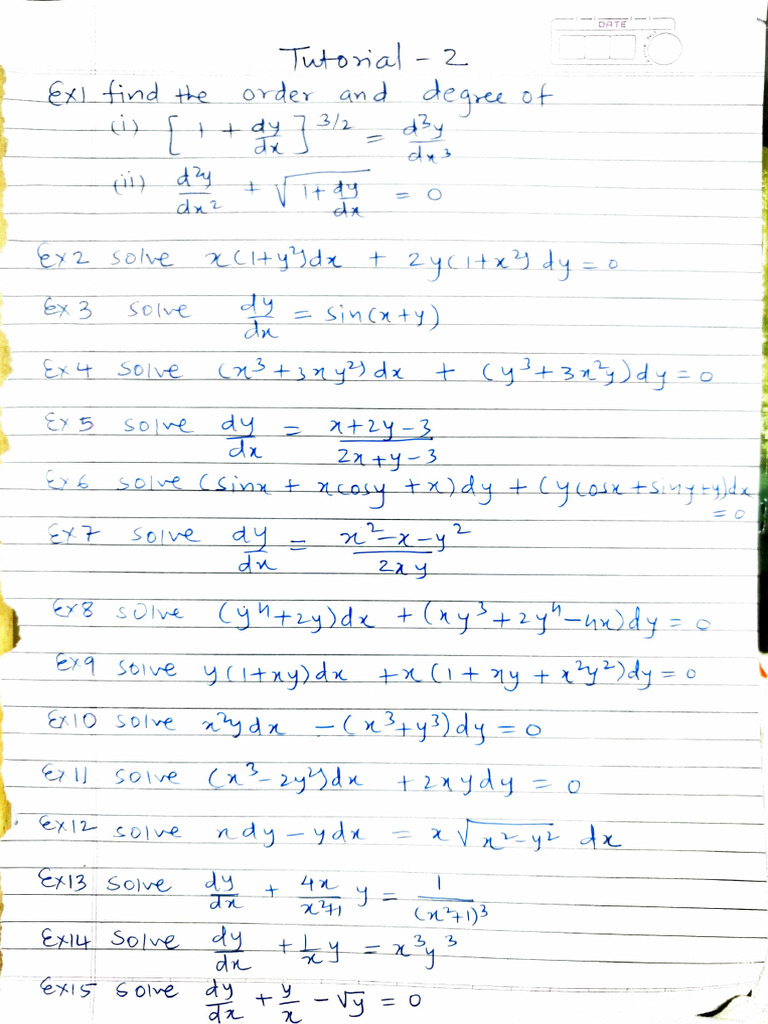 DATE
Tutorial - 2
Ex1 find the order and degree of
(i) [1 + dy/dx]^3/2 = d³y/dx³
(ii) d²y/dx² + √(1+dy/dx) = 0
Ex2 solve x(1+y²)dx + 2y(1+x²)dy = 0
Ex 3 solve dy/dx = sin(x+y)
Ex 4 solve (x³+3xy²)dx + (y³+3x²y)dy = 0
Ex 5 solve dy/dx = x+2y-3/2x+y-3
Ex 6 solve (sinx + xcosy + x)dy + (ycosx + siny + y)dx = 0
Ex 7 solve dy/dx = x²-x-y²/2xy
Ex8 solve (y⁴+2y)dx + (xy³+2y⁴-4x)dy = 0
Ex9 solve y(1+xy)dx + x(1+xy+x²y²)dy = 0
Ex10 solve x²ydx - (x³+y³)dy = 0
Ex11 solve (x³-2y²)dx + 2xydy = 0
Ex12 solve xdy - ydx = x√(x²-y²) dx
Ex13 solve dy/dx + 4x/x²+1 y = 1/(x²+1)³
Ex14 solve dy/dx + 1/x y = x³y³
Ex15 solve dy/dx + y/x - √y = 0